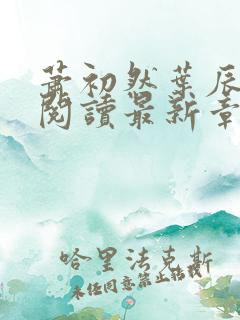 蕭初然葉辰
閱讀最新章
哈里法克斯
未经同意禁止转载